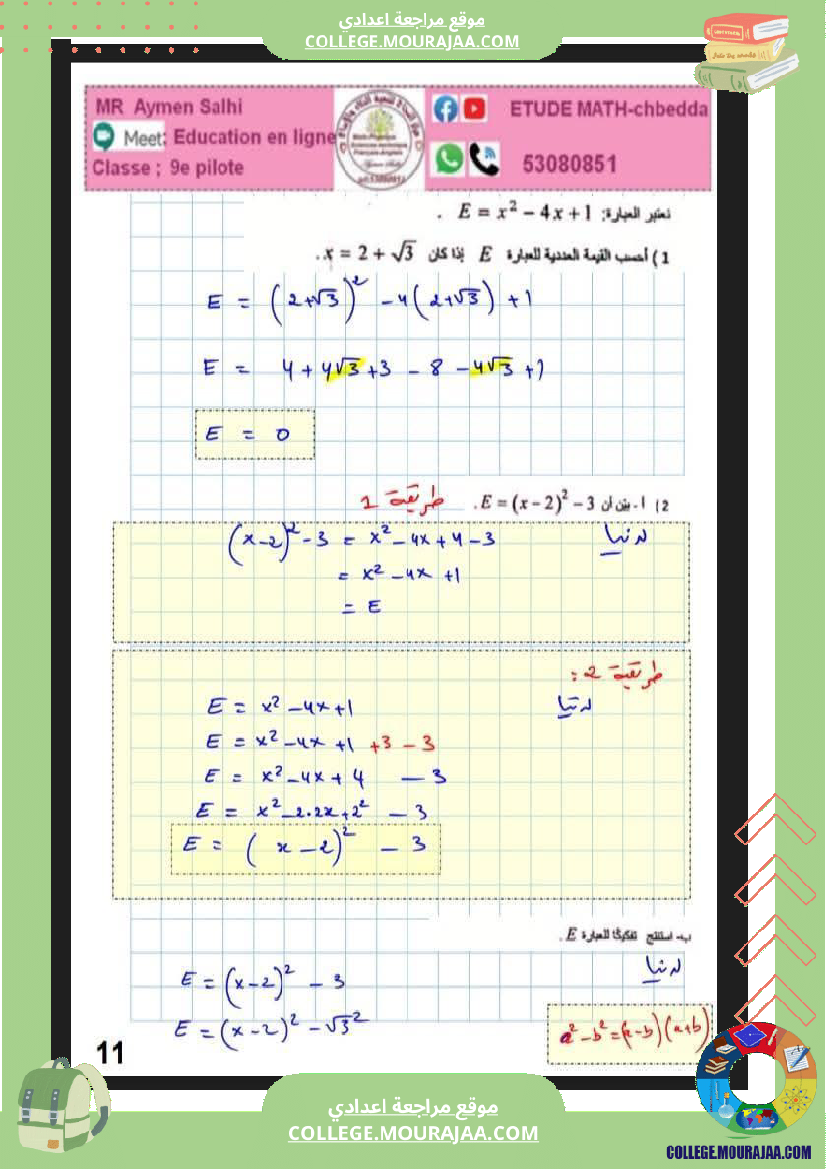 موقع مراجعة اعدادي
COLLEGE.MOURAJAA.COM
MR Aymen Salhi
Meet: Education en ligne
Classe ; 9e pilote
ETUDE MATH-chbedda
53080851
نعتبر العبارة: E = x² − 4x + 1 .
1) أحسب القيمة العددية للعبارة E إذا كان x = 2 + √3 .
E = (2+√3)² − 4(2+√3) + 1
E = 4 + 4√3 + 3 − 8 − 4√3 + 1
E = 0
2) أ- بين أن E = (x − 2)² − 3 .
طريقة 1
لدينا
(x−2)² − 3 = x² − 4x + 4 − 3
= x² − 4x + 1
= E
طريقة 2 :
لدينا
E = x² − 4x + 1
E = x² − 4x + 1 + 3 − 3
E = x² − 4x + 4 − 3
E = x² − 2.2x + 2² − 3
E = (x − 2)² − 3
ب- استنتج تفكيكا للعبارة E .
لدينا
E = (x−2)² − 3
E = (x−2)² − √3²
a² − b² = (a−b)(a+b)
11
موقع مراجعة اعدادي
COLLEGE.MOURAJAA.COM
COLLEGE.MOURAJAA.COM